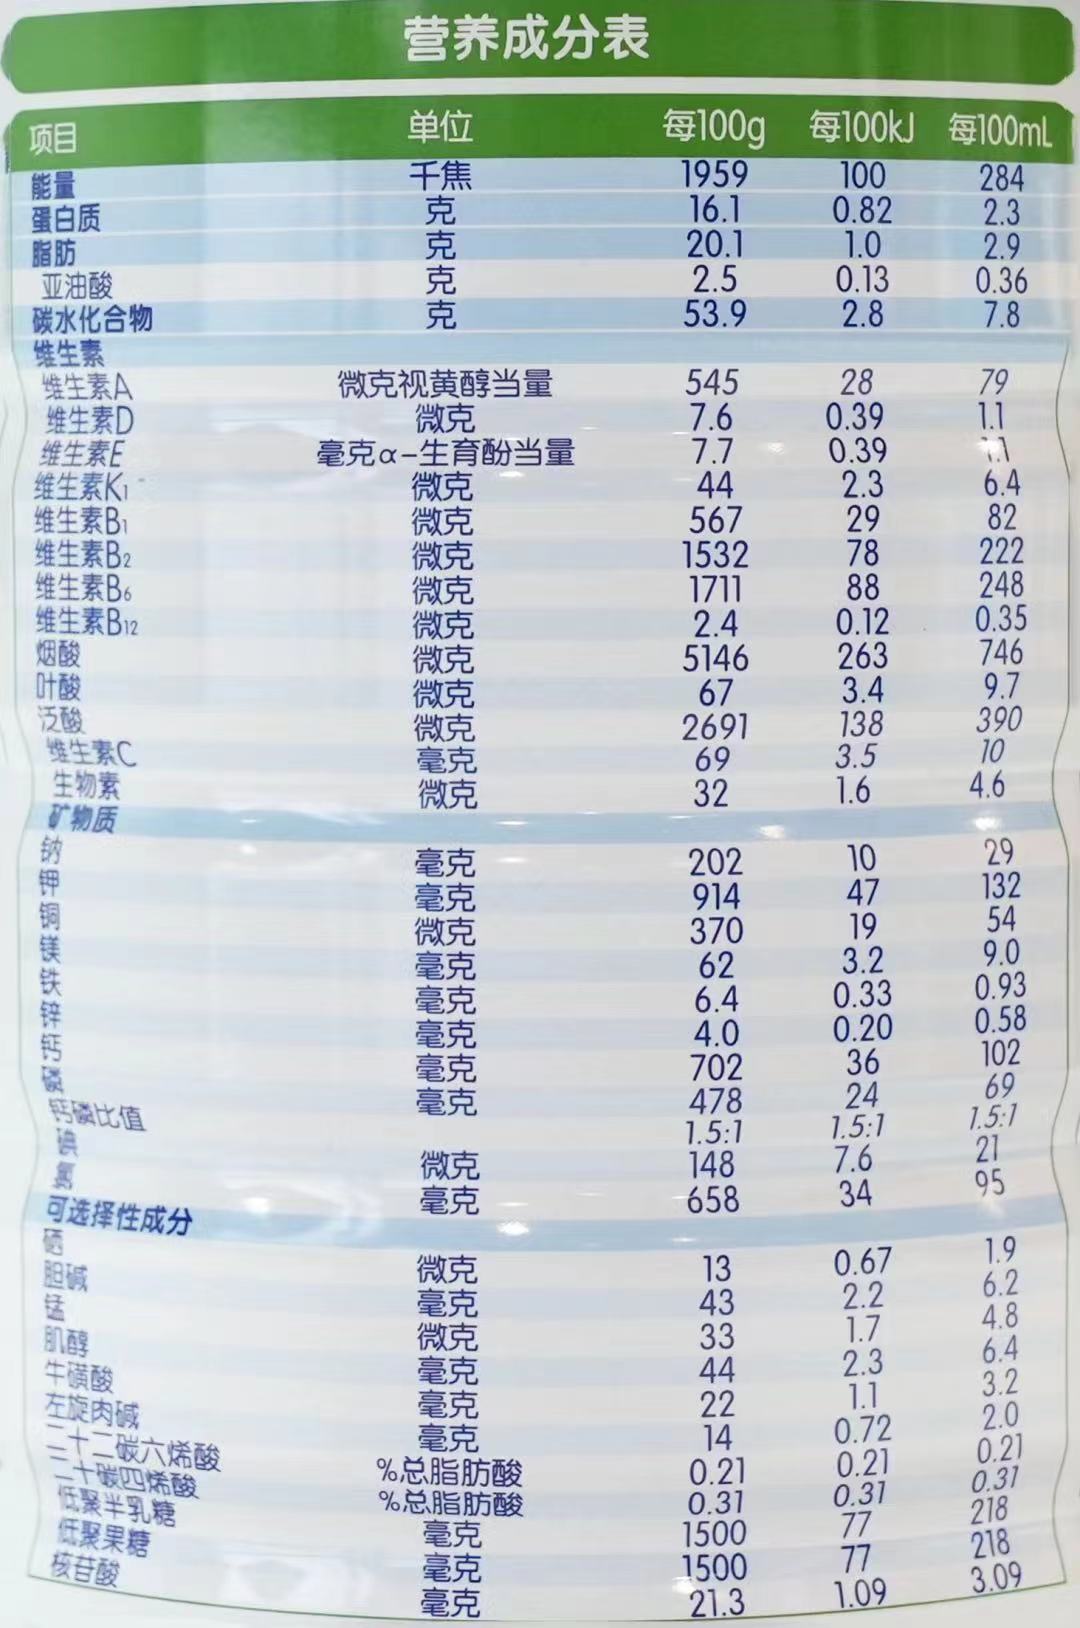 营养成分表
项目 单位 每100g 每100kJ 每100mL
能量 千焦 1959 100 284
蛋白质 克 16.1 0.82 2.3
脂肪 克 20.1 1.0 2.9
亚油酸 克 2.5 0.13 0.36
碳水化合物 克 53.9 2.8 7.8
维生素
维生素A 微克视黄醇当量 545 28 79
维生素D 微克 7.6 0.39 1.1
维生素E 毫克α-生育酚当量 7.7 0.39 1.1
维生素K1 微克 44 2.3 6.4
维生素B1 微克 567 29 82
维生素B2 微克 1532 78 222
维生素B6 微克 1711 88 248
维生素B12 微克 2.4 0.12 0.35
烟酸 微克 5146 263 746
叶酸 微克 67 3.4 9.7
泛酸 微克 2691 138 390
维生素C 毫克 69 3.5 10
生物素 微克 32 1.6 4.6
矿物质
钠 毫克 202 10 29
钾 毫克 914 47 132
铜 微克 370 19 54
镁 毫克 62 3.2 9.0
铁 毫克 6.4 0.33 0.93
锌 毫克 4.0 0.20 0.58
钙 毫克 702 36 102
磷 毫克 478 24 69
钙磷比值 1.5:1 1.5:1 1.5:1
碘 微克 148 7.6 21
氯 毫克 658 34 95
可选择性成分
硒 微克 13 0.67 1.9
胆碱 毫克 43 2.2 6.2
锰 微克 33 1.7 4.8
肌醇 毫克 44 2.3 6.4
牛磺酸 毫克 22 1.1 3.2
左旋肉碱 毫克 14 0.72 2.0
二十二碳六烯酸 %总脂肪酸 0.21 0.21 0.21
二十碳四烯酸 %总脂肪酸 0.31 0.31 0.31
低聚半乳糖 毫克 1500 77 218
低聚果糖 毫克 1500 77 218
核苷酸 毫克 21.3 1.09 3.09